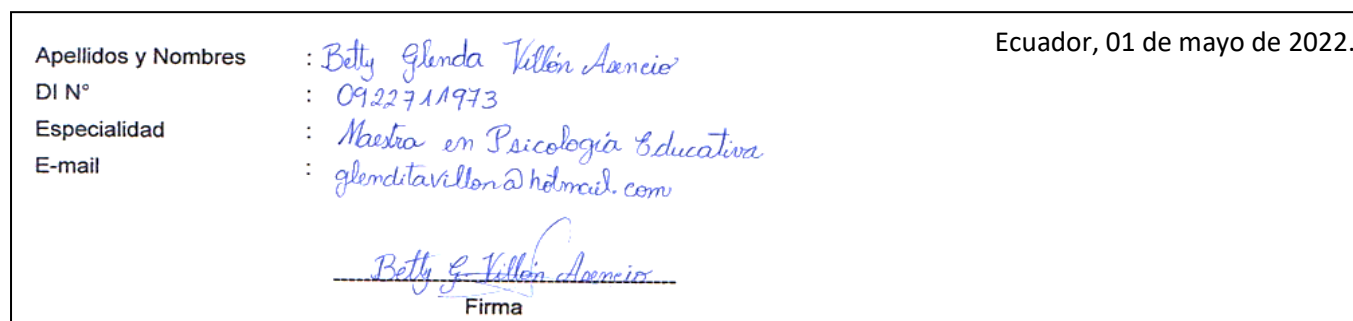 Ecuador, 01 de mayo de 2022.
Apellidos y Nombres : Betty Glenda Villón Asencio
DI N° : 0922711973
Especialidad : Maestra en Psicología Educativa
E-mail : glenditavillon@hotmail.com
Betty G Villón Asencio
Firma